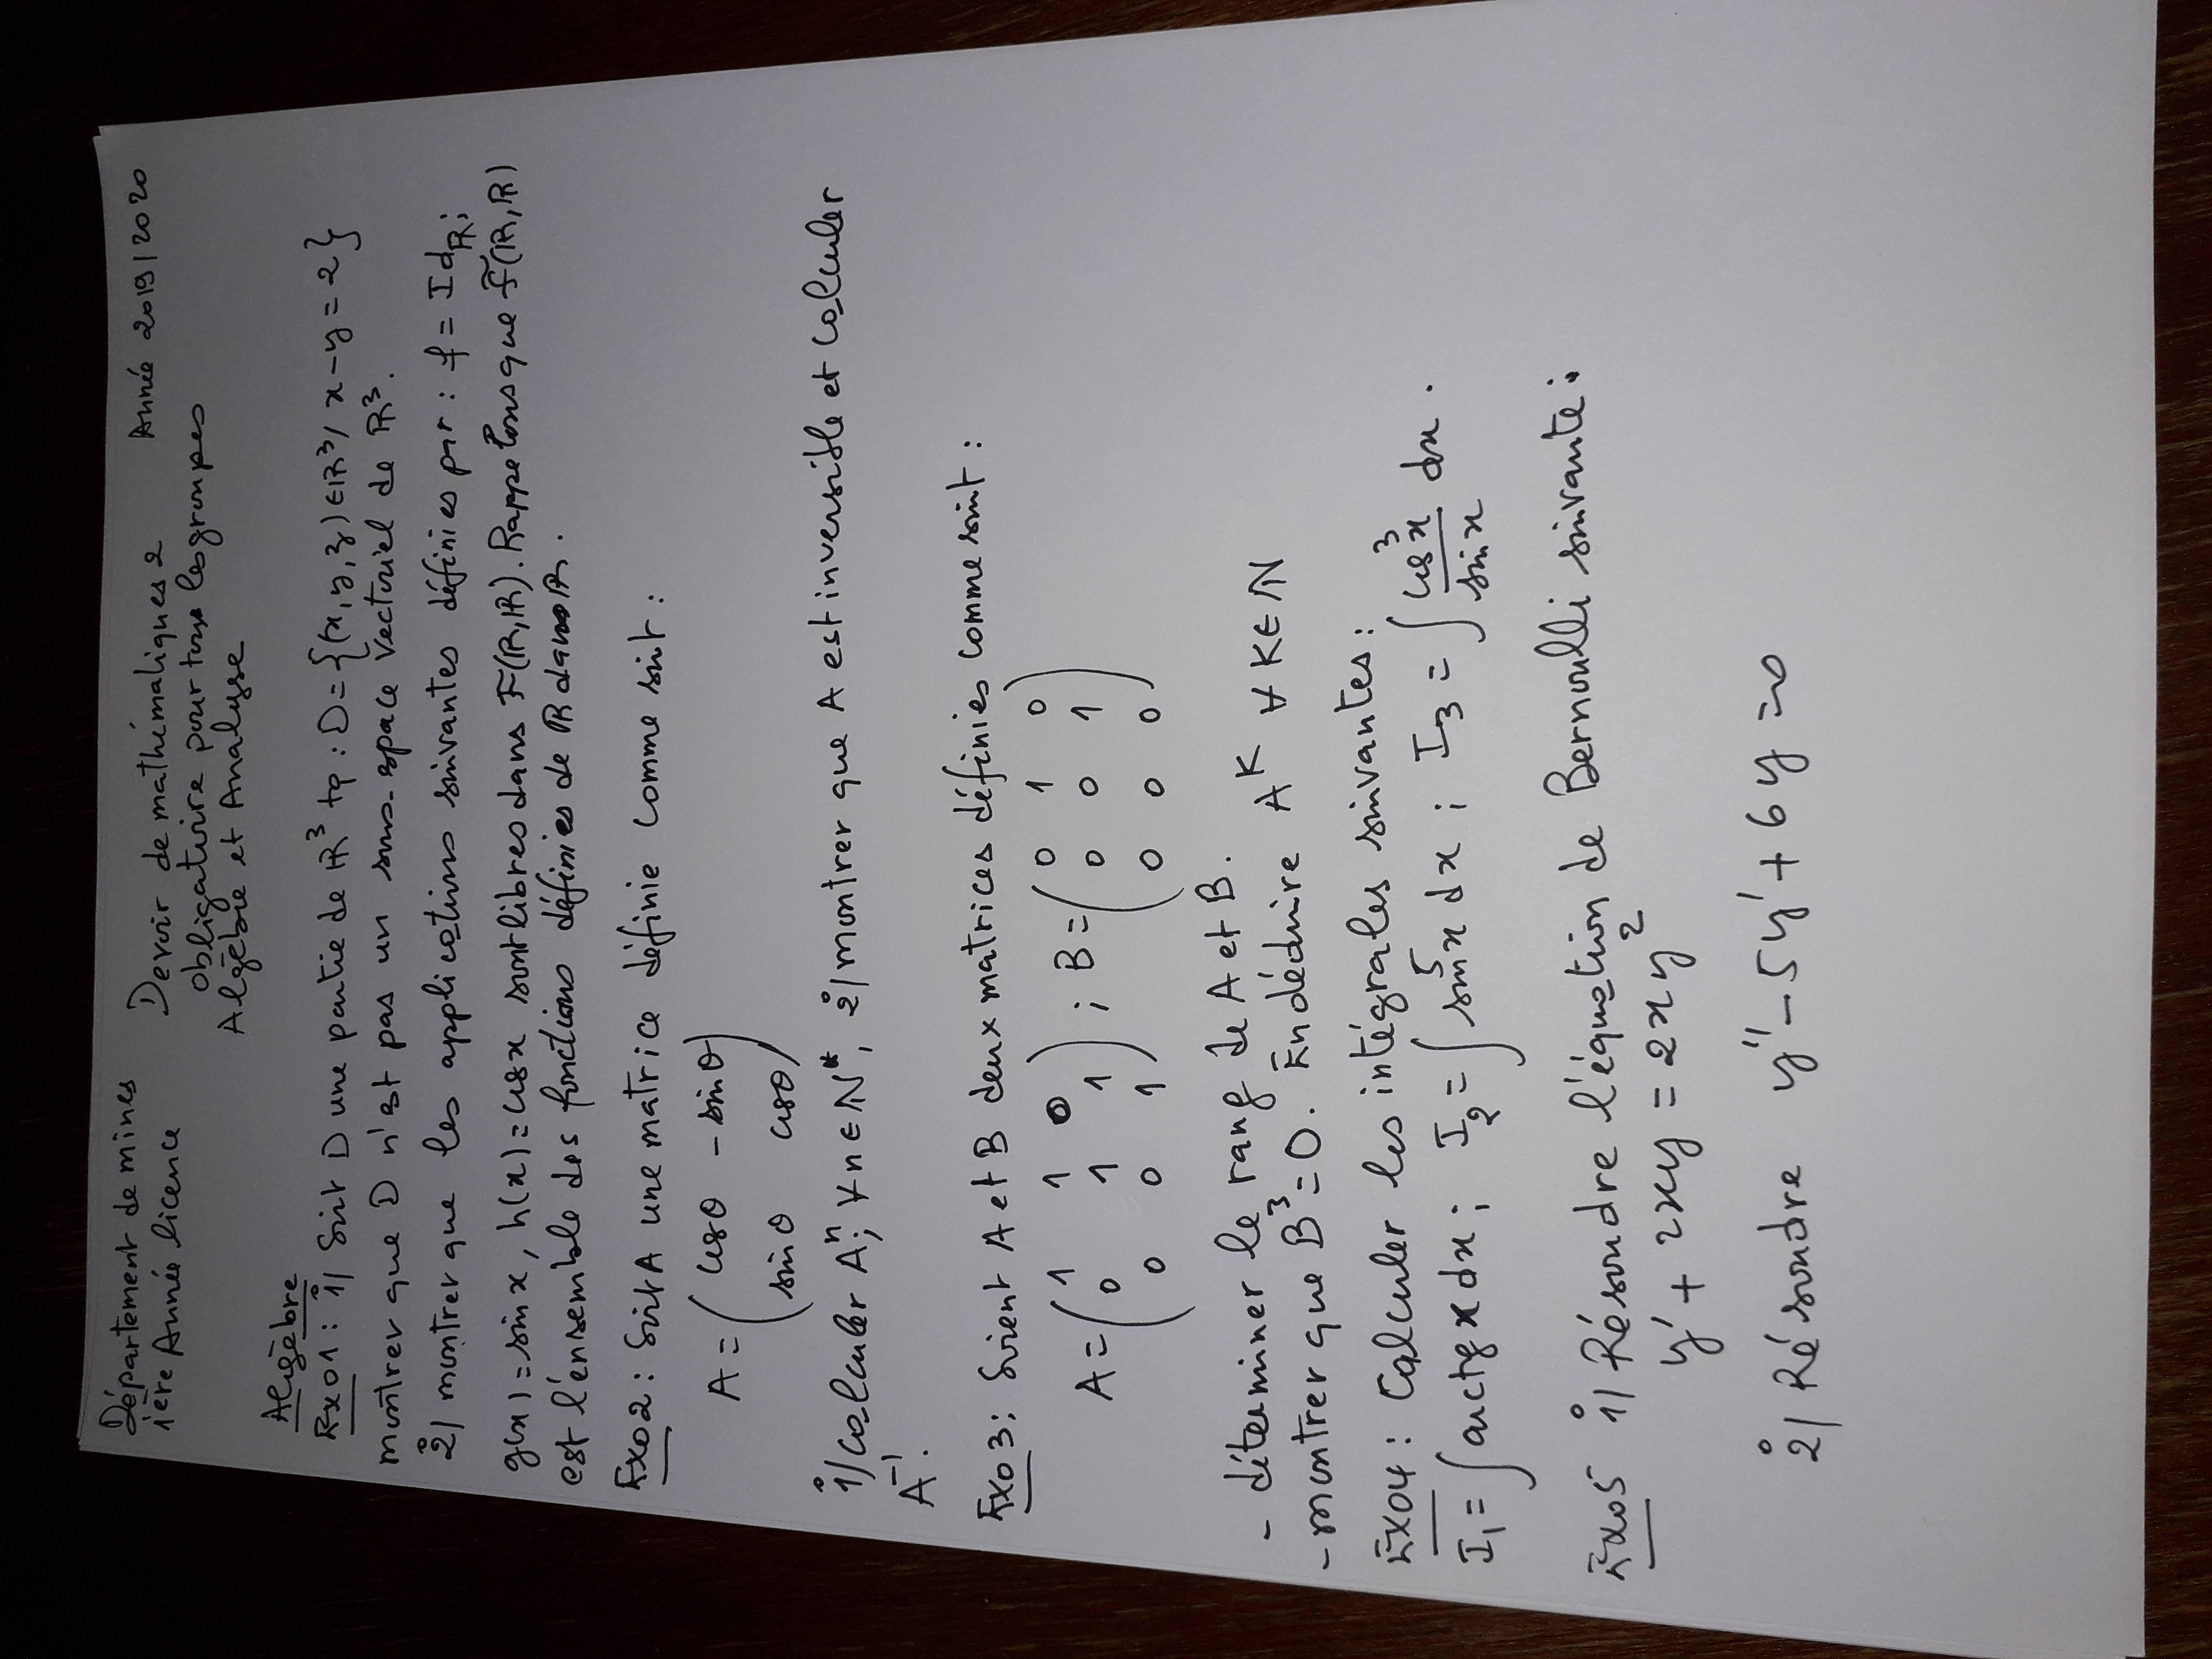 Département de mines Devoir de mathématiques 2 Année 2019/2020
1ère Année licence obligatoire pour tous les groupes
Algèbre et Analyse
Algèbre
Exo1 : 1°/ Soit D une partie de ℝ³ tq : D = {(x, y, z) ∈ ℝ³ / x - y = 2}
montrer que D n'est pas un sous-espace vectoriel de ℝ³.
2°/ montrer que les applications suivantes définies par : f = Id_ℝ ;
g(x) = sin x, h(x) = cos x sont libres dans F(ℝ,ℝ). Rappelons que F(ℝ,ℝ)
est l'ensemble des fonctions définies de ℝ dans ℝ.
Exo2 : Soit A une matrice définie comme suit :
A = ( cosθ -sinθ )
( sinθ cosθ )
1°/ calculer Aⁿ ; ∀ n ∈ ℕ*, 2°/ montrer que A est inversible et calculer
A⁻¹.
Exo3 : Soient A et B deux matrices définies comme suit :
A = ( 1 1 0 ) ; B = ( 0 1 0 )
( 0 1 1 ) ( 0 0 1 )
( 0 0 1 ) ( 0 0 0 )
- déterminer le rang de A et B.
- montrer que B³ = 0. En déduire Aᴷ ∀ K ∈ ℕ
Exo4 : Calculer les intégrales suivantes :
I₁ = ∫ arctg x dx ; I₂ = ∫ sin⁵x dx ; I₃ = ∫ cos³x / sin x dx .
Exo5 1°/ Résoudre l'équation de Bernoulli suivante :
y' + 2xy = 2xy²
2°/ Résoudre y'' - 5y' + 6y = 0